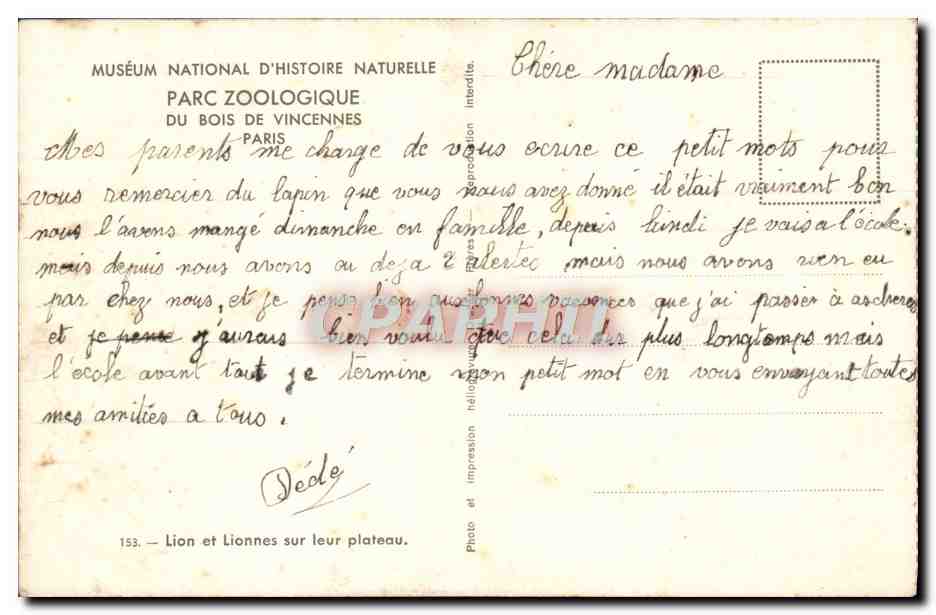 MUSÉUM NATIONAL D'HISTOIRE NATURELLE
PARC ZOOLOGIQUE
DU BOIS DE VINCENNES
PARIS
Chére madame
Mes parents me charge de vous ecrire ce petit mots pour
vous remercier du lapin que vous nous avez donné il était vraiment bon
nous l'avons mangé dimanche en famille, depuis lundi je vais a l'école.
mais depuis nous avons eu deja 2 alertes mais nous avons rien eu
par chez nous, et je pense bien aux bonnes vacances que j'ai passer à
et je pense j'aurais bien voulu que cela dur plus longtemps mais
l'école avant tout je termine mon petit mot en vous envoyant toutes
mes amitiés a tous.
Dédé
153. — Lion et Lionnes sur leur plateau.
Photo et impression héliogravure Frères Reproduction interdite.
CPARHIT